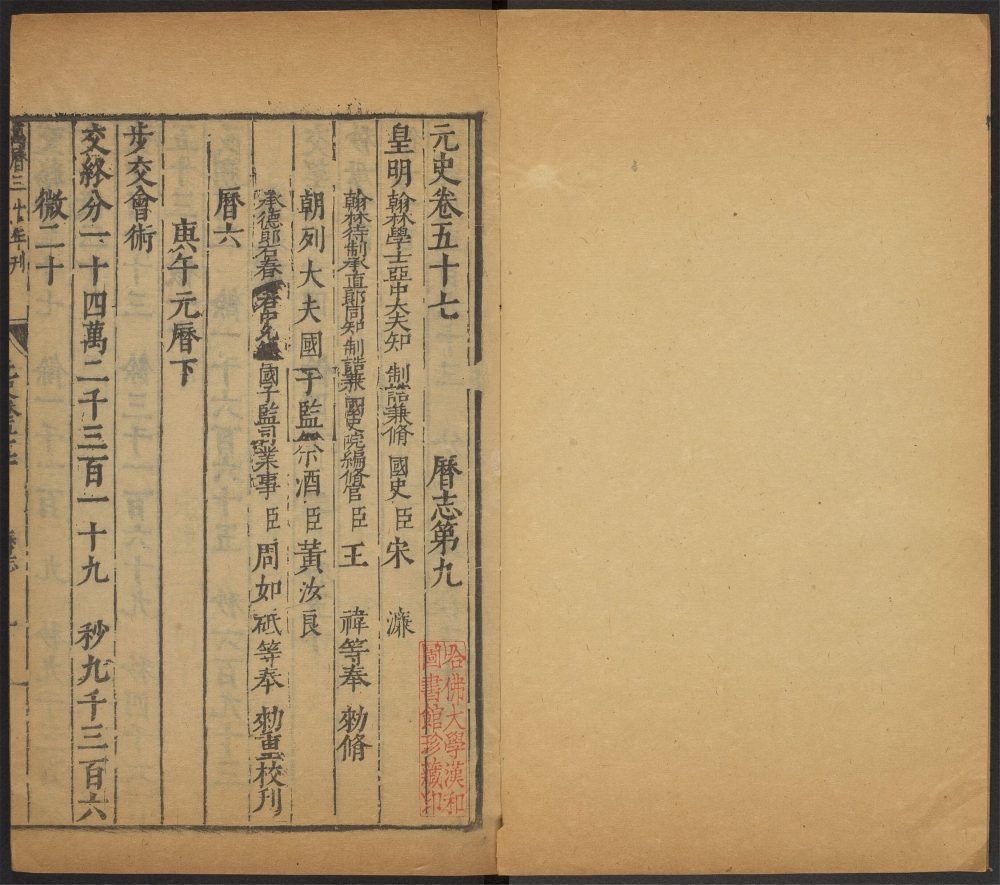 元史卷五十七 曆志第九
皇明翰林學士亞中大夫知 制誥兼脩 國史臣宋 濂
翰林待制承直郎同知 制誥兼 國史院編脩官臣王 禕等奉 勑脩
朝列大夫國子監祭酒臣黃汝良
承德郎右春 國子監司業事臣周如砥等奉 勑重校刊
曆六
庚午元曆下
步交會術
交終分一十四萬二千三百一十九 秒九千三百六
微二十
萬曆三十年刊
哈佛大學漢和
圖書館珍藏印